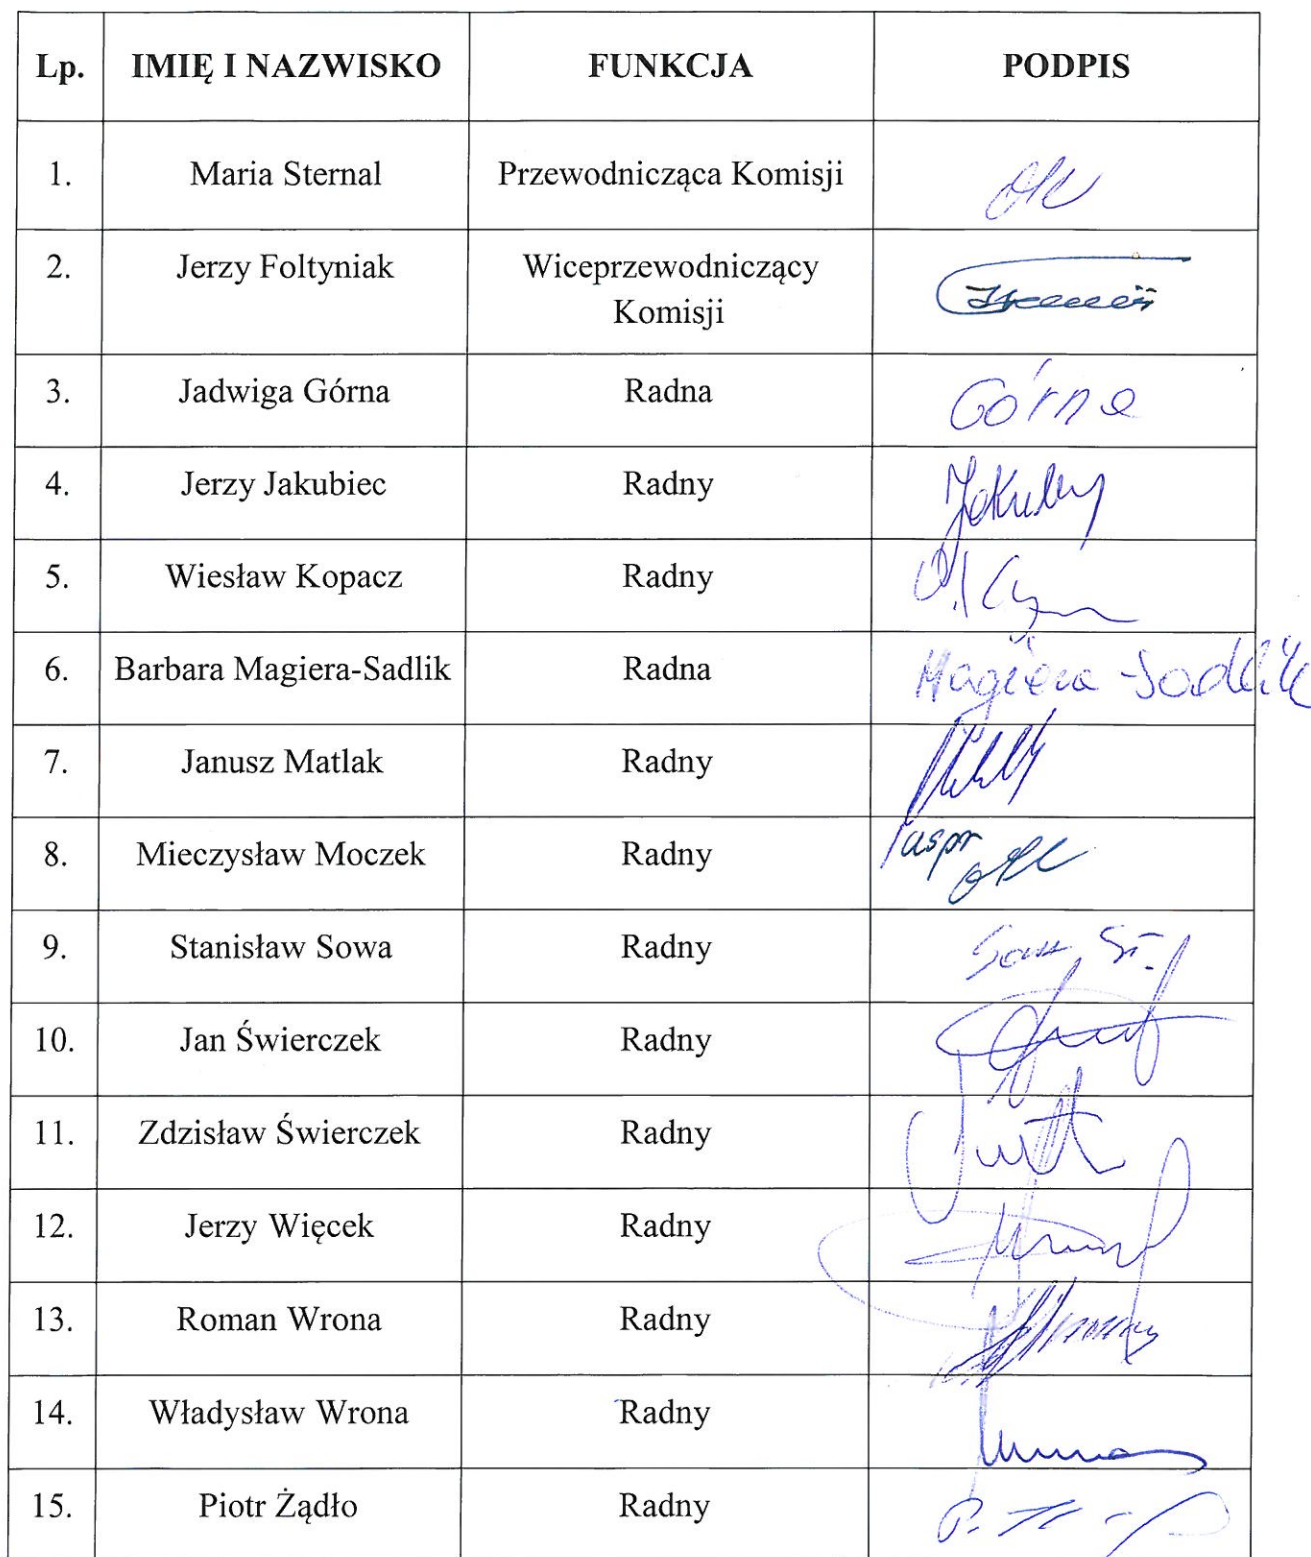 Lp. IMIĘ I NAZWISKO FUNKCJA PODPIS
1. Maria Sternal Przewodnicząca Komisji
2. Jerzy Foltyniak Wiceprzewodniczący
Komisji
3. Jadwiga Górna Radna Górna
4. Jerzy Jakubiec Radny
5. Wiesław Kopacz Radny
6. Barbara Magiera-Sadlik Radna Magiera-Sadlik
7. Janusz Matlak Radny
8. Mieczysław Moczek Radny uspr
9. Stanisław Sowa Radny Sowa St.
10. Jan Świerczek Radny
11. Zdzisław Świerczek Radny
12. Jerzy Więcek Radny
13. Roman Wrona Radny
14. Władysław Wrona Radny
15. Piotr Żądło Radny